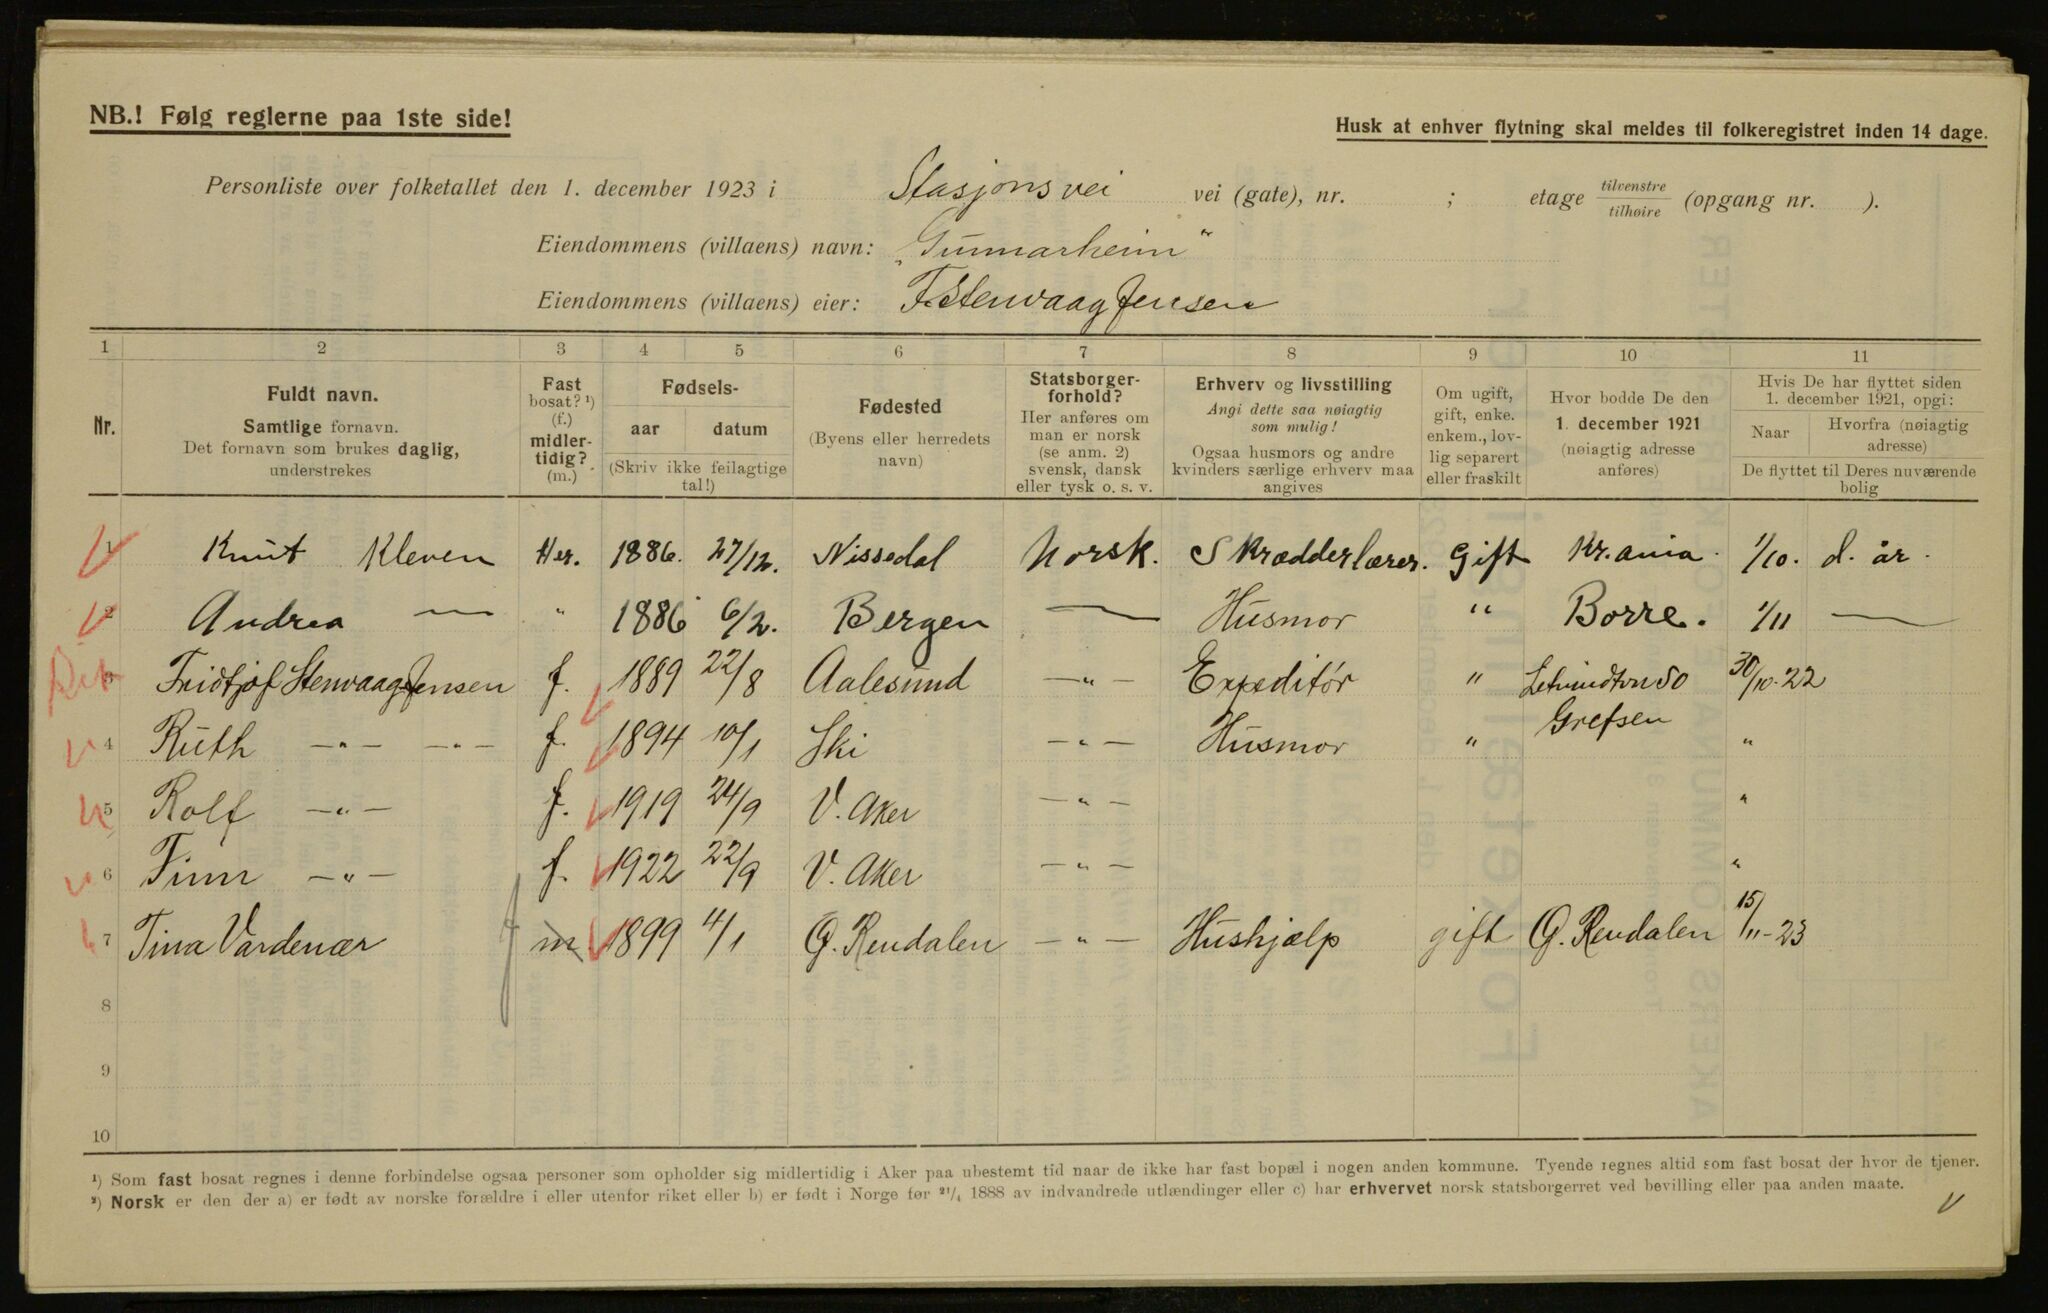 NB.! Følg reglerne paa 1ste side!
Husk at enhver flytning skal meldes til folkeregistret inden 14 dage.
Personliste over folketallet den 1. december 1923 i Stasjonsvei vei (gate), nr. ; etage tilvenstre/tilhøire (opgang nr. ).
Eiendommens (villaens) navn: „Gunnarheim“
Eiendommens (villaens) eier: F. Stenvaag Jensen
1 2 3 4 5 6 7 8 9 10 11
Nr.
Fuldt navn.
Samtlige fornavn.
Det fornavn som brukes daglig,
understrekes
Fast
bosat? ¹)
(f.)
midler-
tidig?
(m.)
Fødsels-
aar datum
(Skriv ikke feilagtige
tal!)
Fødested
(Byens eller herredets
navn)
Statsborger-
forhold?
Her anføres om
man er norsk
(se anm. 2)
svensk, dansk
eller tysk o. s. v.
Erhverv og livsstilling
Angi dette saa nøiagtig
som mulig!
Ogsaa husmors og andre
kvinders særlige erhverv maa
angives
Om ugift,
gift, enke.
enkem., lov-
lig separert
eller fraskilt
Hvor bodde De den
1. december 1921
(nøiagtig adresse
anføres)
Hvis De har flyttet siden
1. december 1921, opgi:
Naar Hvorfra (nøiagtig
adresse)
De flyttet til Deres nuværende
bolig
1 Knut Kleven Her. 1886. 27/12. Nissedal Norsk. Skrædderlærer. Gift Kr.ania. 1/10. d. år.
2 Andrea — " 1886 6/2. Bergen — Husmor " Borre. 1/11 —
3 Fridtjof Stenvaag Jensen f. 1889 22/8 Aalesund —"— Expeditør " 50 30/10-22
Grefsen
4 Ruth —"— —"— f. 1894 10/1 Ski —"— Husmor " "
5 Rolf —"— f. 1919 24/9 V. Aker —"— "
6 Finn —"— f. 1922 22/9 V. Aker —"— "
7 Tina Vardenær f m 1899 4/1 Ø. Rendalen —"— Hushjælp gift Ø. Rendalen 15/11-23
8
9
10
¹) Som fast bosat regnes i denne forbindelse ogsaa personer som opholder sig midlertidig i Aker paa ubestemt tid naar de ikke har fast bopæl i nogen anden kommune. Tyende regnes altid som fast bosat der hvor de tjener.
²) Norsk er den der a) er født av norske forældre i eller utenfor riket eller b) er født i Norge før 21/4 1888 av indvandrede utlændinger eller c) har erhvervet norsk statsborgerret ved bevilling eller paa anden maate.